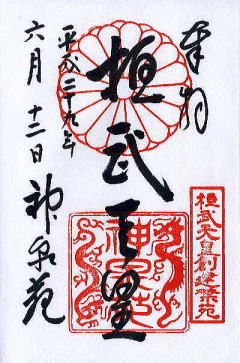 奉拝
桓武天皇
平成二十九年
六月十二日
神泉苑
桓武天皇創建禁苑